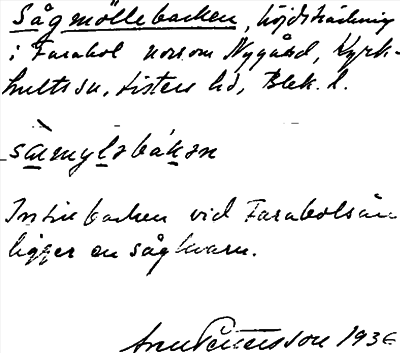 Sågmöllebacken, höjdsträckning
i Farabol norrom Nygård, Kyrk-
hults sn, Listers hd, Blek. l.
sàmyləbákən
Intill backen vid Farabolsån
ligger en sågkvarn.
Pettersson 1936